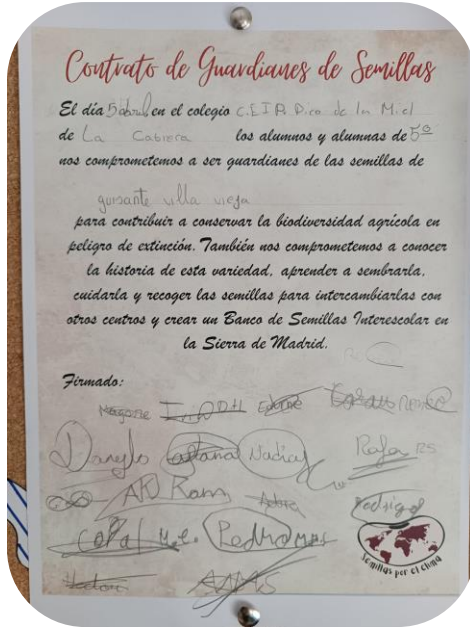 Contrato de Guardianes de Semillas
El día 5 abril en el colegio C.E.I.P. Pico de la Miel
de La Cabrera los alumnos y alumnas de 5º
nos comprometemos a ser guardianes de las semillas de
guisante villa vieja
para contribuir a conservar la biodiversidad agrícola en
peligro de extinción. También nos comprometemos a conocer
la historia de esta variedad, aprender a sembrarla,
cuidarla y recoger las semillas para intercambiarlas con
otros centros y crear un Banco de Semillas Interescolar en
la Sierra de Madrid.
Firmado:
Danylo Nadia Rafa RS
Rodrigo
Pedro
Semillas por el clima